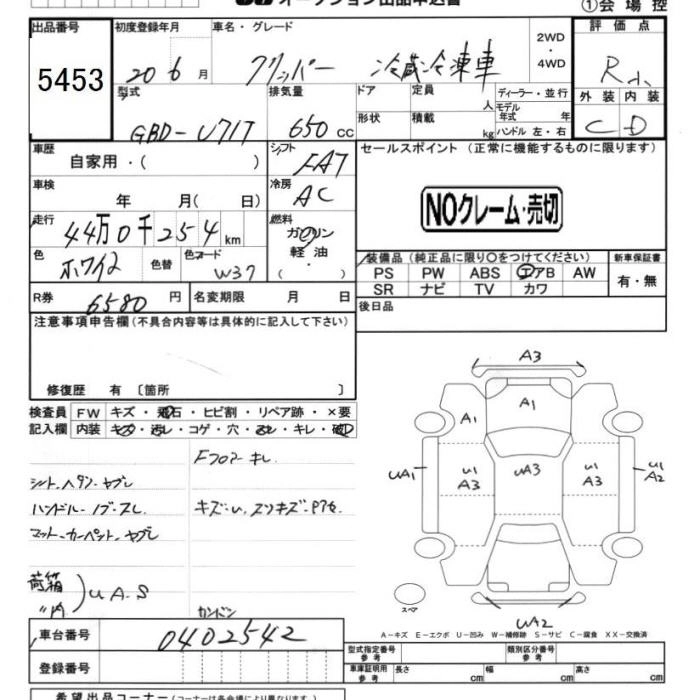 オークション出品申込書
①会場控
出品番号
5453
初度登録年月
20 6 月
車名・グレード
クリッパー 冷蔵冷凍車
2WD
・
4WD
評価点
R
型式
GBD-U71T
排気量
650 cc
ドア
定員
人
ディーラー・並行
モデル年式 年
形状
積載
kg
ハンドル 左・右
外装 内装
C D
車歴
自家用・( )
シフト
FAT
セールスポイント (正常に機能するものに限ります)
車検
年 月( 日)
冷房
AC
NOクレーム・売切
走行
44万0千254km
燃料
ガソリン
軽油
・( )
色
ホワイト
色替
色コード
W37
装備品(純正品に限り○をつけてください)
新車保証書
PS PW ABS エアB AW
SR ナビ TV カワ
有・無
R券
6580 円
名変期限 月 日
後日品
注意事項申告欄(不具合内容等は具体的に記入して下さい)
修復歴 有 〔箇所 〕
検査員 FW キズ・飛石・ヒビ割・リペア跡・×要
記入欄 内装 キズ・汚レ・コゲ・穴・ヌレ・キレ・破レ
Fフロアーキレ
シート・ヘタン・ヤブレ
ハンドル・ノブ・スレ
マット・カーペット・ヤブレ
荷箱
〃内
)UA.S
カンバン
A3
A1
A1
UA1
U1
A3
UA3
U1
A3
U1
A2
スペア
UA2
A-キズ E-エクボ U-凹み W-補修跡 S-サビ C-腐食 XX-交換済
車台番号
0402542
登録番号
型式指定番号
参考
類別区分番号
参考
車庫証明用
参考
長さ cm
幅 cm
高さ cm
希望出品コーナー